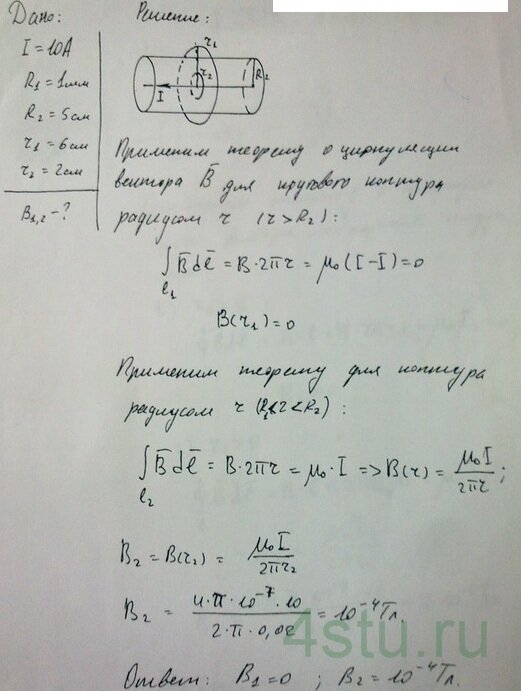 Дано: Решение:
I = 10А
R₁ = 1мм
R₂ = 5см
r₁ = 6см
r₂ = 2см
B₁,₂ - ?
r₁
r₂
R₂
I
Применим теорему о циркуляции
вектора B̅ для кругового контура
радиусом r (r > R₂):
∫ B̅dl̅ = B·2πr = μ₀(I−I) = 0
l₁
B(r₁) = 0
Применим теорему для контура
радиусом r (R₁<r<R₂):
∫ B̅dl̅ = B·2πr = μ₀·I => B(r) = μ₀I / 2πr ;
l₂
B₂ = B(r₂) = μ₀I / 2πr₂
B₂ = 4·π·10⁻⁷·10 / 2·π·0,02 = 10⁻⁴Тл.
4stu.ru
Ответ: B₁=0 ; B₂=10⁻⁴Тл.